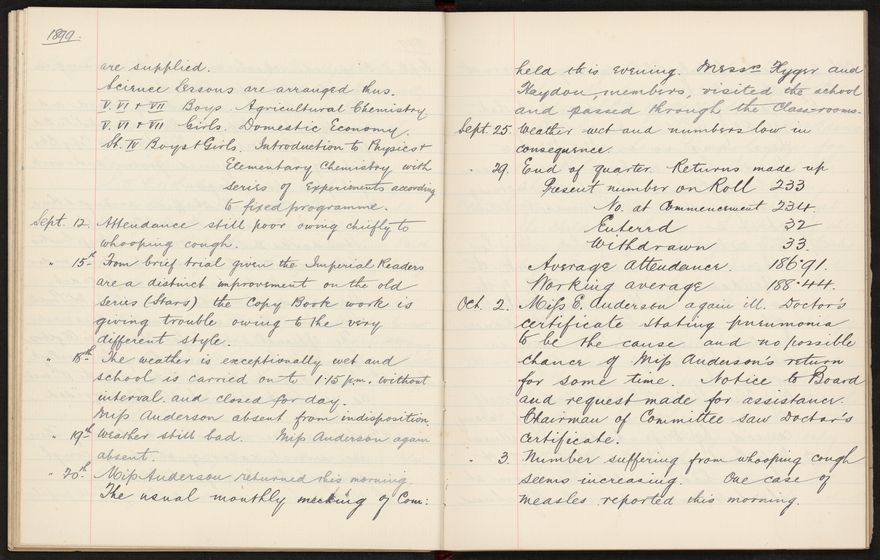 1899.
are supplied.
Science Lessons are arranged thus.
V. VI + VII Boys. Agricultural Chemistry
V. VI + VII Girls. Domestic Economy.
St. IV Boys + Girls. Introduction to Physics +
Elementary Chemistry with
series of Experiments according
to fixed programme.
Sept. 12. Attendance still poor owing chiefly to
whooping cough.
" 15th From brief trial given the Imperial Readers
are a distinct improvement on the old
series (Stars) the Copy Book work is
giving trouble owing to the very
different style.
" 18th The weather is exceptionally wet and
school is carried on to 1.15 p.m. without
interval and closed for day.
Miss Anderson absent from indisposition.
" 19th Weather still bad. Miss Anderson again
absent.
" 20th Miss Anderson returned this morning.
The usual monthly meeting of Com:
held this evening. Messrs and
Haydon, members, visited the school
and passed through the Classrooms.
Sept. 25. Weather wet and numbers low in
consequence.
" 29. End of quarter. Returns made up
Present number on Roll 233
No. at Commencement 234.
Entered 32
Withdrawn 33.
Average attendance. 186.91.
Working average 188.44.
Oct. 2. Miss E. Anderson again ill. Doctor's
certificate stating pneumonia
to be the cause and no possible
chance of Miss Anderson's return
for some time. Notice to Board
and request made for assistance.
Chairman of Committee saw Doctor's
Certificate.
" 3. Number suffering from whooping cough
seems increasing. One case of
measles reported this morning.